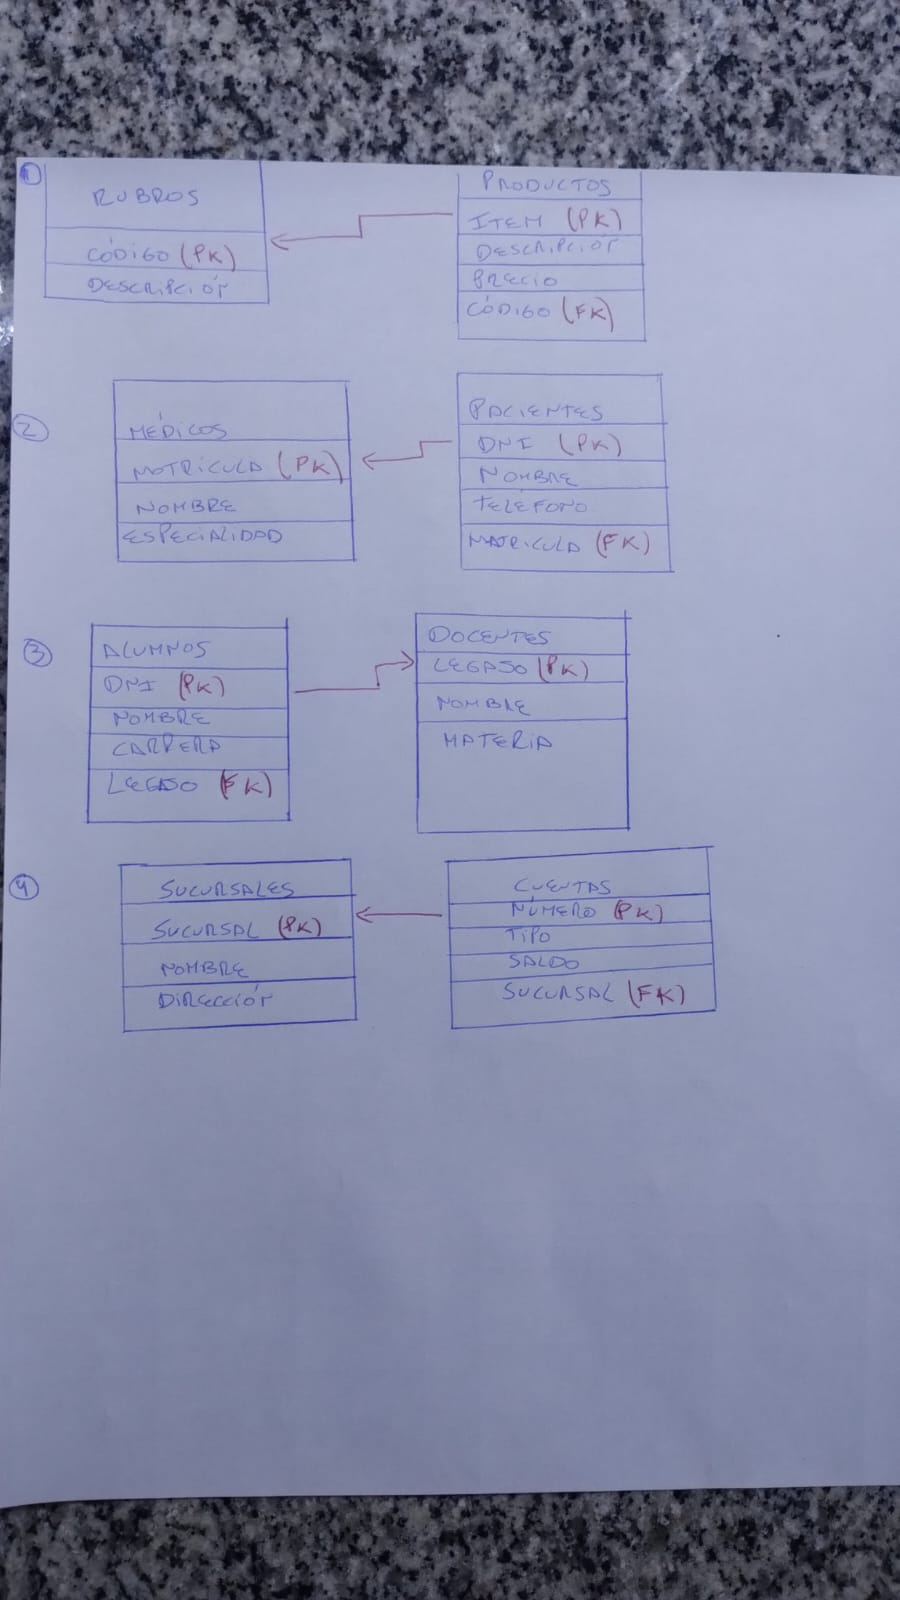 1
RUBROS
CÓDIGO (PK)
DESCRIPCIÓN
PRODUCTOS
ITEM (PK)
DESCRIPCIÓN
PRECIO
CÓDIGO (FK)
2
MÉDICOS
MATRICULA (PK)
NOMBRE
ESPECIALIDAD
PACIENTES
DNI (PK)
NOMBRE
TELÉFONO
MATRICULA (FK)
3
ALUMNOS
DNI (PK)
NOMBRE
CARRERA
LEGAJO (FK)
DOCENTES
LEGAJO (PK)
NOMBRE
MATERIA
4
SUCURSALES
SUCURSAL (PK)
NOMBRE
DIRECCIÓN
CUENTAS
NÚMERO (PK)
TIPO
SALDO
SUCURSAL (FK)